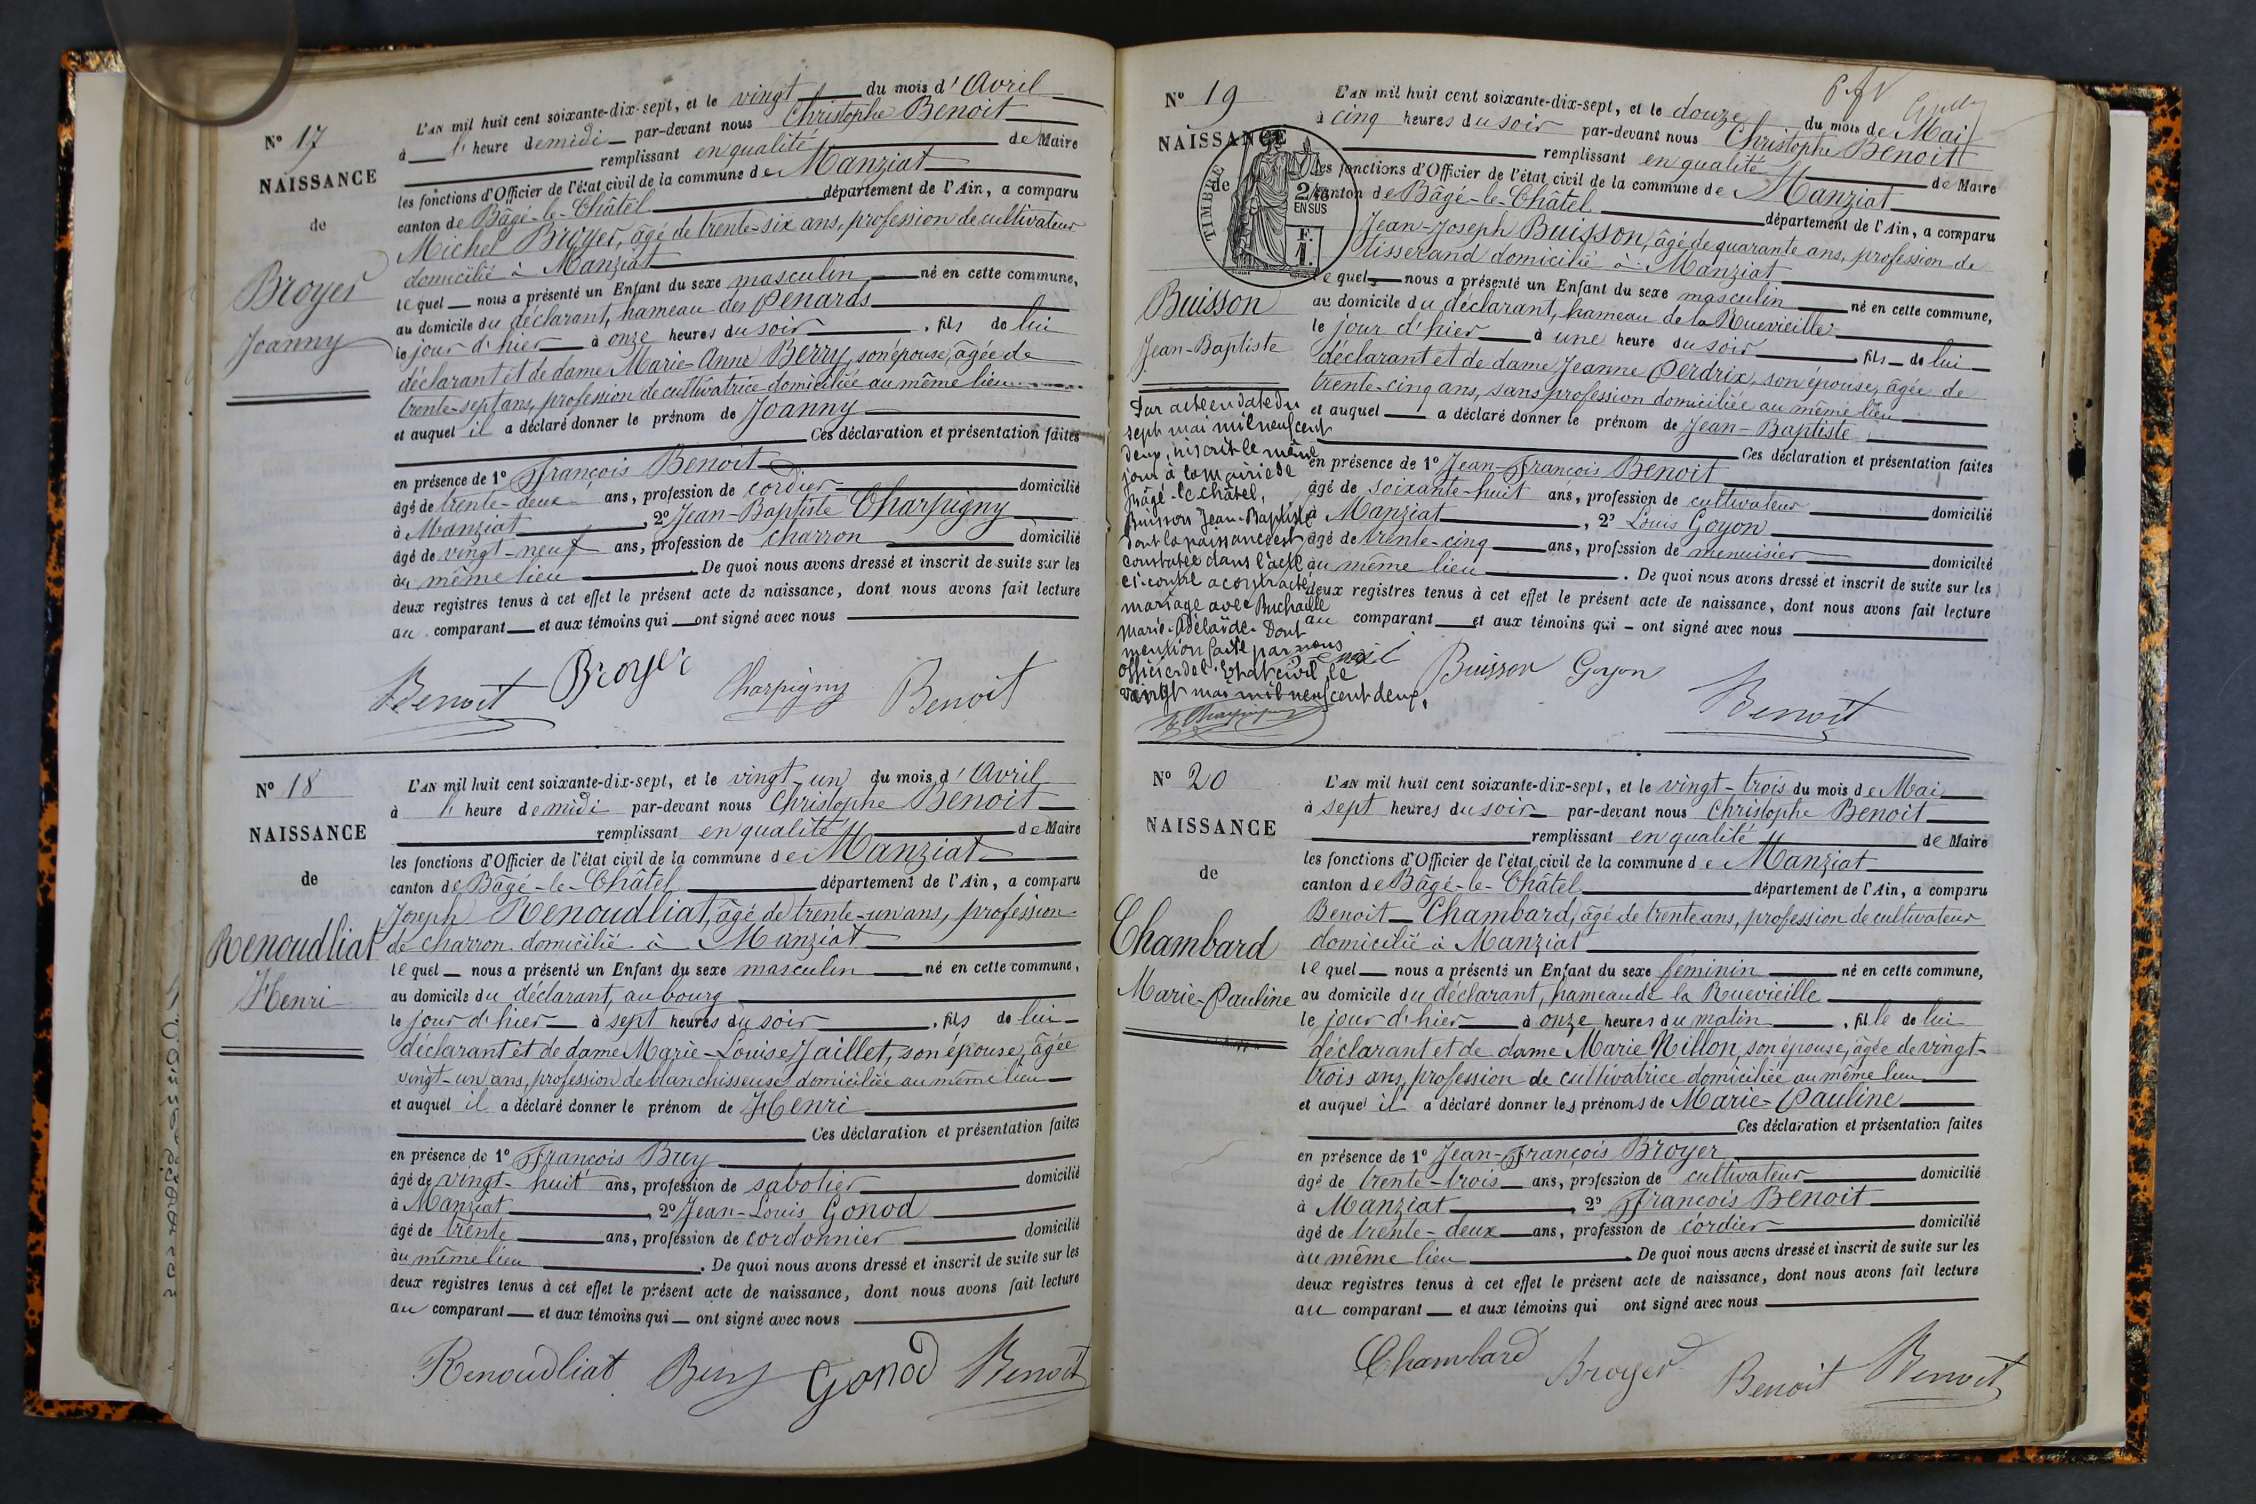 N° 17
NAISSANCE
de
Broyer
Joanny
L'AN mil huit cent soixante-dix-sept, et le vingt du mois d'Avril
à l' heure de midi par-devant nous Christophe Benoit
remplissant en qualité de Maire
les fonctions d'Officier de l'état civil de la commune de Manziat
canton de Bâgé-le-Châtel département de l'Ain, a comparu
Michel Broyer, âgé de trente-six ans, profession de cultivateur
domicilié à Manziat
lequel nous a présenté un Enfant du sexe masculin né en cette commune,
au domicile du déclarant, hameau des Penards
le jour d'hier à onze heures du soir, fils de lui
déclarant et de dame Marie-Anne Berry, son épouse, âgée de
trente-sept ans, profession de cultivatrice domiciliée au même lieu
et auquel il a déclaré donner le prénom de Joanny
Ces déclaration et présentation faites
en présence de 1° François Benoit
âgé de trente-deux ans, profession de cordier domicilié
à Manziat, 2° Jean-Baptiste Charpigny
âgé de vingt-neuf ans, profession de charron domicilié
au même lieu. De quoi nous avons dressé et inscrit de suite sur les
deux registres tenus à cet effet le présent acte de naissance, dont nous avons fait lecture
au comparant et aux témoins qui ont signé avec nous
Benoit Broyer Charpigny Benoit
N° 18
NAISSANCE
de
Renoudliat
Henri
L'AN mil huit cent soixante-dix-sept, et le vingt-un du mois d'Avril
à l' heure de midi par-devant nous Christophe Benoit
remplissant en qualité de Maire
les fonctions d'Officier de l'état civil de la commune de Manziat
canton de Bâgé-le-Châtel département de l'Ain, a comparu
Joseph Renoudliat, âgé de trente-un ans, profession
de charron domicilié à Manziat
lequel nous a présenté un Enfant du sexe masculin né en cette commune,
au domicile du déclarant, au bourg
le jour d'hier à sept heures du soir, fils de lui
déclarant et de dame Marie-Louise Jaillet, son épouse, âgée
vingt-un ans, profession de blanchisseuse domiciliée au même lieu
et auquel il a déclaré donner le prénom de Henri
Ces déclaration et présentation faites
en présence de 1° François Buy
âgé de vingt-huit ans, profession de sabotier domicilié
à Manziat, 2° Jean-Louis Gonod
âgé de trente ans, profession de cordonnier domicilié
au même lieu. De quoi nous avons dressé et inscrit de suite sur les
deux registres tenus à cet effet le présent acte de naissance, dont nous avons fait lecture
au comparant et aux témoins qui ont signé avec nous
Renoudliat Buy Gonod Benoit
N° 19
NAISSANCE
de
TIMBRE
2/10
EN SUS
F.
1.
Buisson
Jean-Baptiste
L'AN mil huit cent soixante-dix-sept, et le douze du mois de Mai
à cinq heures du soir par-devant nous Christophe Benoit
remplissant en qualité de Maire
les fonctions d'Officier de l'état civil de la commune de Manziat
canton de Bâgé-le-Châtel département de l'Ain, a comparu
Jean-Joseph Buisson, âgé de quarante ans, profession de
tisserand domicilié à Manziat
lequel nous a présenté un Enfant du sexe masculin né en cette commune,
au domicile du déclarant, hameau de la Ruevieille
le jour d'hier à une heure du soir fils de lui
déclarant et de dame Jeanne Perdrix, son épouse, âgée de
trente-cinq ans, sans profession domiciliée au même lieu
et auquel a déclaré donner le prénom de Jean-Baptiste
Ces déclaration et présentation faites
en présence de 1° Jean-François Benoit
âgé de soixante-huit ans, profession de cultivateur domicilié
à Manziat, 2° Louis Goyon
âgé de trente-cinq ans, profession de menuisier domicilié
au même lieu. De quoi nous avons dressé et inscrit de suite sur les
deux registres tenus à cet effet le présent acte de naissance, dont nous avons fait lecture
au comparant et aux témoins qui ont signé avec nous
Buisson Goyon
Benoit
Par acte en date du
sept mai mil neuf cent
deux, inscrit le même
jour à la mairie de
Bâgé-le châtel,
Buisson Jean-Baptiste
dont la naissance est
constatée dans l'acte
ci-contre a contracté
mariage avec Buchaille
Marie-Adélaïde. Dont
mention faite par nous
officier de l'Etat civil, le
vingt mai mil neuf cent deux.
N° 20
NAISSANCE
de
Chambard
Marie-Pauline
L'AN mil huit cent soixante-dix-sept, et le vingt-trois du mois de Mai
à sept heures du soir par-devant nous Christophe Benoit
remplissant en qualité de Maire
les fonctions d'Officier de l'état civil de la commune de Manziat
canton de Bâgé-le-Châtel département de l'Ain, a comparu
Benoit Chambard, âgé de trente ans, profession de cultivateur
domicilié à Manziat
lequel nous a présenté un Enfant du sexe féminin né en cette commune,
au domicile du déclarant, hameau de la Ruevieille
le jour d'hier à onze heures du matin, fille de lui
déclarant et de dame Marie Nillon, son épouse, âgée de vingt-
trois ans, profession de cultivatrice domiciliée au même lieu
et auquel il a déclaré donner les prénoms de Marie-Pauline
Ces déclaration et présentation faites
en présence de 1° Jean-François Broyer
âgé de trente-trois ans, profession de cultivateur domicilié
à Manziat, 2° François Benoit
âgé de trente-deux ans, profession de cordier domicilié
au même lieu. De quoi nous avons dressé et inscrit de suite sur les
deux registres tenus à cet effet le présent acte de naissance, dont nous avons fait lecture
au comparant et aux témoins qui ont signé avec nous
Chambard Broyer Benoit Benoit